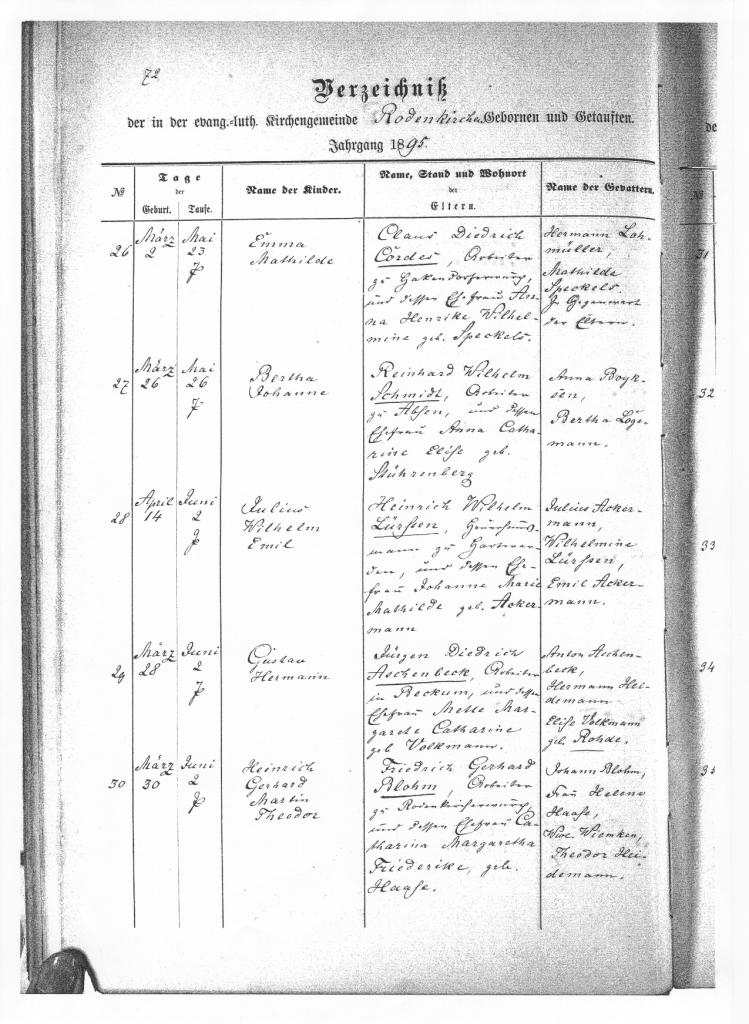 72
Verzeichniß
der in der evang.-luth. Kirchengemeinde Rodenkirchen Gebornen und Getauften.
Jahrgang 1895.
№
Tage
der
Geburt. Taufe.
Name der Kinder.
Name, Stand und Wohnort
der
Eltern.
Name der Gevattern.
26
März
2
Mai
23
Emma
Mathilde
Claus Diedrich
Cordes, Arbeiter
zu Hakendorferwurp,
und dessen Ehefrau An-
na Henrike Wilhel-
mine geb. Speckels.
Hermann Loh-
müller,
Mathilde
Speckels.
In Gegenwart
der Eltern.
27
März
26
Mai
26
Bertha
Johanne
Reinhard Wilhelm
Schmidt, Arbeiter
zu Absen, und dessen
Ehefrau Anna Catha-
rine Elise geb.
Stührenberg
Anna Boyk-
sen,
Bertha Loge-
mann.
28
April
14
Juni
2
Julius
Wilhelm
Emil
Heinrich Wilhelm
Lürssen,
mann zu Hartwar-
den, und dessen Ehe-
frau Johanne Marie
Mathilde geb. Acker-
mann
Julius Acker-
mann,
Wilhelmine
Lürssen,
Emil Acker-
mann.
29
März
28
Juni
2
Gustav
Hermann
Jürgen Diedrich
Aschenbeck, Arbeiter
in Beckum, und dessen
Ehefrau Mette Mar-
garete Catharine
geb Volkmann.
Anton Aschen-
beck,
Hermann Hei-
demann
Elise Volkmann
geb. Rohde.
30
März
30
Juni
2
Heinrich
Gerhard
Martin
Theodor
Friedrich Gerhard
Blohm, Arbeiter
zu Rodenkircherwurp,
und dessen Ehefrau Ca-
tharina Margaretha
Friederike, geb.
Haase.
Johann Blohm,
Frau Helene
Haase,
Wwe. Wiemken,
Theodor Hei-
demann.
de
№
31
32
33
34
35